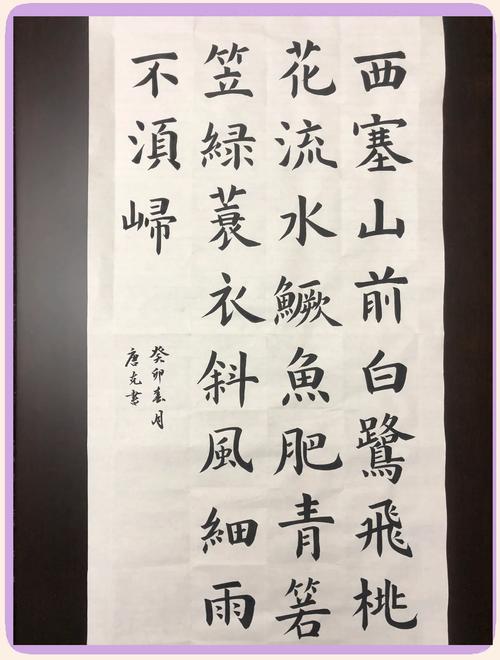 西塞山前白鷺飛桃
花流水鱖魚肥青箬
笠緑蓑衣斜風細雨
不湏㱕
癸卯春月
唐克書